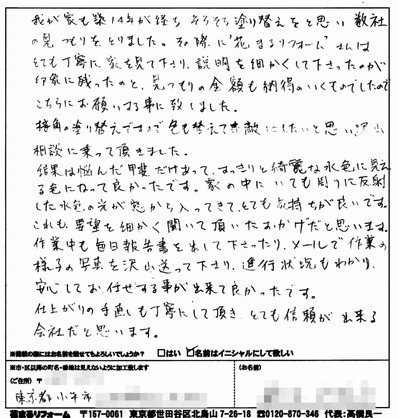 我が家も築14年が経ち そろそろ塗り替えをと思い 数社
の見つもりをとりました。その際に"花まるリフォーム"さんは
とても丁寧に 家を見て下さり、説明を細かくして下さったのが
印象に残ったのと、見つもりの金額も納得のいくものでしたので
こちらにお願いする事に致しました。
折角の塗り替えですので色も替えて素敵にしたいと思い沢山
相談に乗って頂きました。
結果は悩んだ甲斐だけあって、すっきりと綺麗な水色に見え
る色になって良かったです。家の中にいても周りに反射
した水色の光が窓から入ってきて、とても気持ちが良いです。
これも、要望を細かく聞いて頂いたおかげだと思います。
作業中も毎日報告書を出して下さったり、メールで作業の
様子の写真を沢山送って下さり、進行状況もわかり、
安心してお任せする事が出来て良かったです。
仕上がりの手直しも丁寧にして頂き、とても信頼が出来る
会社だと思います。
※掲載の際にはお名前を載せてもよろしいでしょうか? □はい ☑名前はイニシャルにして欲しい
※市・区以降の町名・番地は見えないように加工致します
(ご住所) 〒
(お名前)
東京都小平市
花まるリフォーム 〒157-0061 東京都世田谷区北烏山7-26-18 ☎0120-870-346 代表:高橋良一